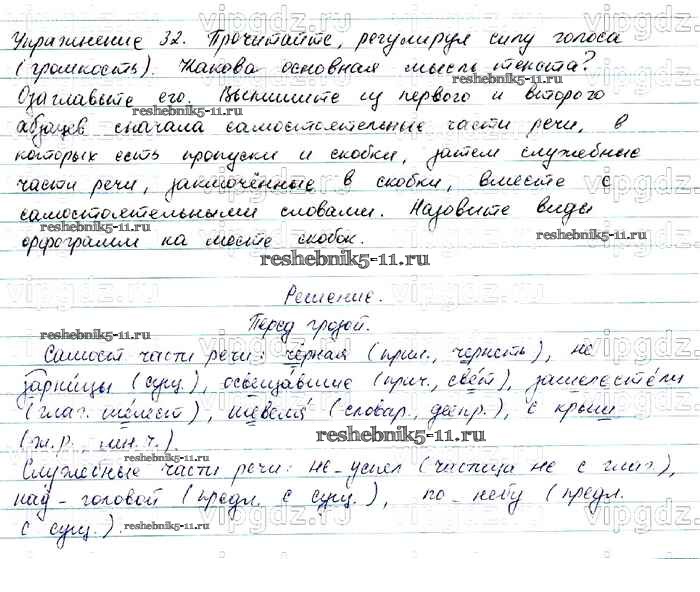 Упражнение 32. Прочитайте, регулируя силу голоса
(громкость). Какова основная мысль текста?
Озаглавьте его. Выпишите из первого и второго
абзацев сначала самостоятельные части речи, в
которых есть пропуски и скобки, затем служебные
части речи, заключённые в скобки, вместе с
самостоятельными словами. Назовите виды
орфограмм на месте скобок.
Решение.
Перед грозой.
Самост части речи: чёрная (прил., чернеть), не
зарницы (сущ.), освещавшие (прич., свет), зашелестели
(глаг. шелест), шевеля (словар., деепр.), с крыш
(ж.р., мн.ч.).
Служебные части речи: не успел (частица не с глаг.),
над головой (предл. с сущ.), по небу (предл.
с сущ.).
reshebnik5-11.ru
vipgdz.ru